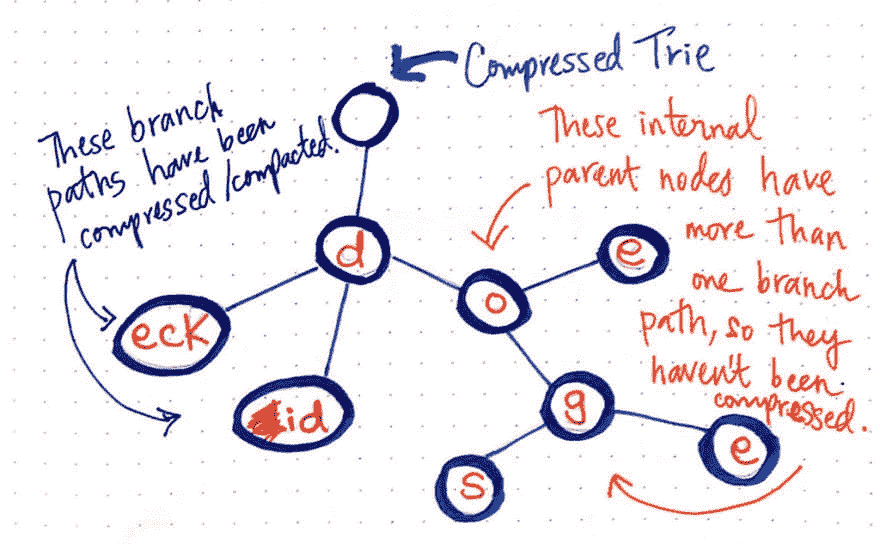 Compressed Trie
These branch
paths have been
compressed/compacted.
These internal
parent nodes have
more than
one branch
path, so they
haven't been
compressed.
d
eck
id
o
e
g
s
e